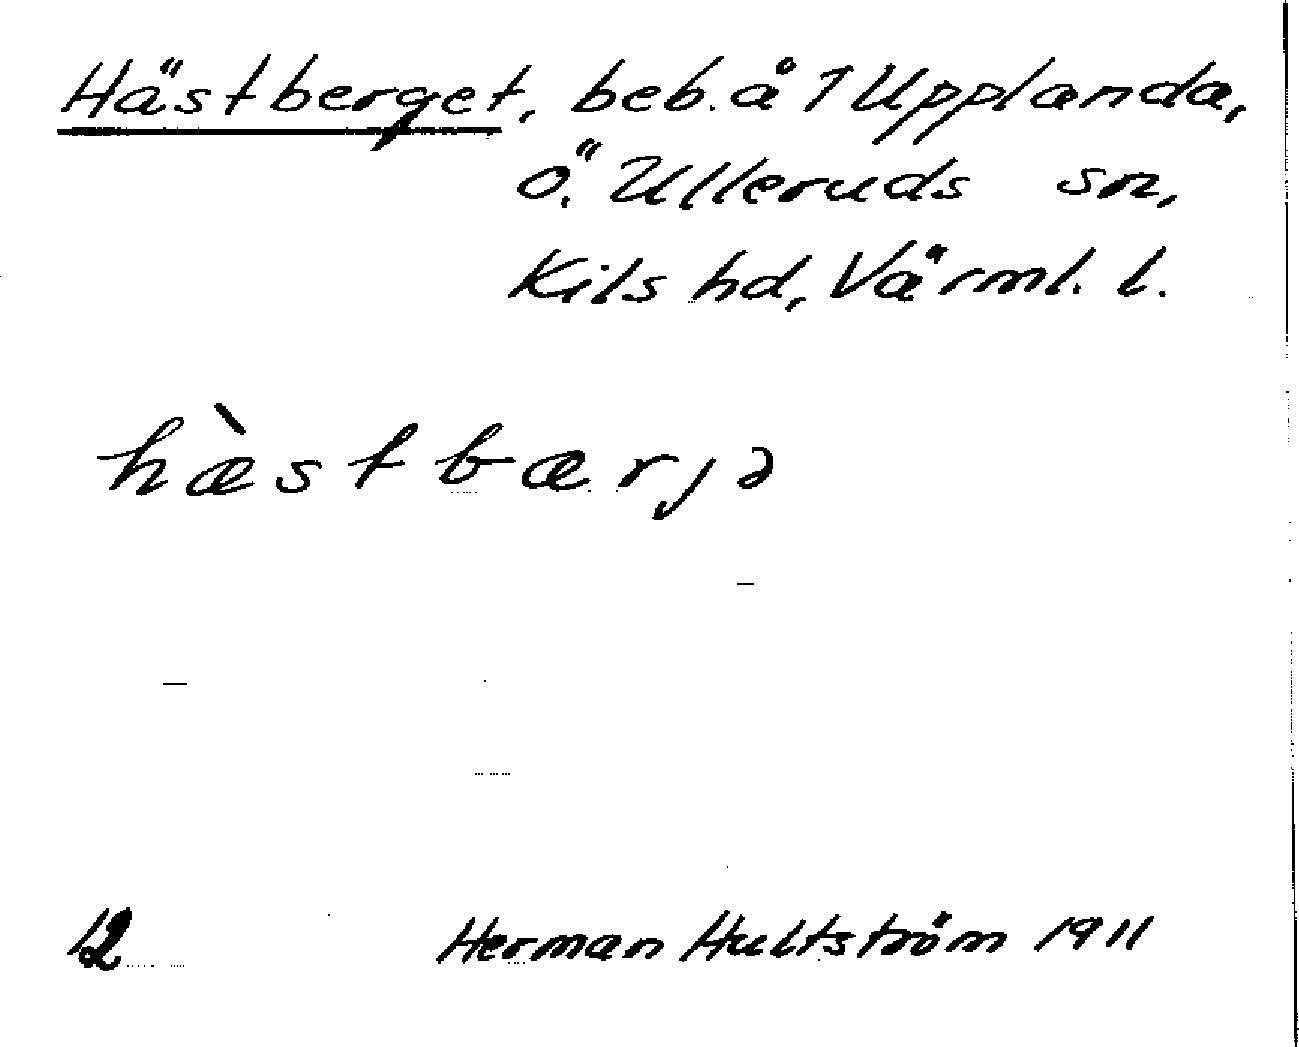 Hästberget, beb. å 1 Upplanda,
Ö. Ulleruds sn,
Kils hd, Värml. l.
hæ̀stbærjə
12
Herman Hultström 1911